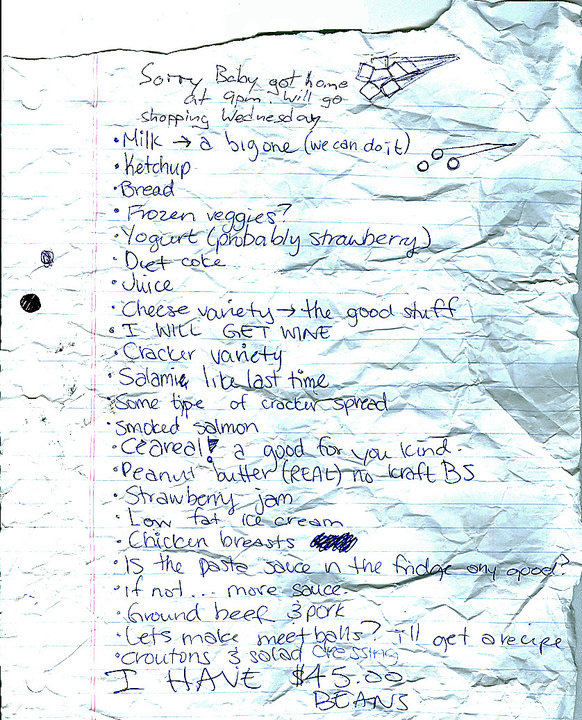 Sorry Baby got home
at 9pm. Will go
shopping Wednesday
• Milk → a big one (we can do it)
• Ketchup
• Bread
• Frozen veggies?
• Yogurt (probably strawberry)
• Diet coke
• Juice
• Cheese variety → the good stuff
• I WILL GET WINE
• Cracker variety
• Salami like last time
• Some type of cracker spread
• smoked salmon
• Ceareal! a good for you kind.
• Peanut butter (REAL) no kraft BS
• Strawberry jam
• Low fat ice cream
• Chicken breasts
• Is the pasta sauce in the fridge any good?
• if not... more sauce.
• Ground beef & pork
• Lets make meetballs? i'll get a recipe
• croutons & salad dressing
I HAVE $45.00
BEANS